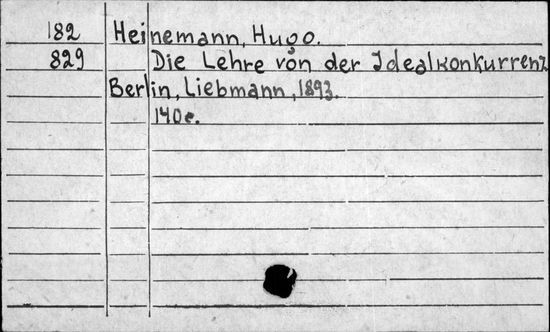 182 Heinemann, Hugo.
829 Die Lehre von der Idealkonkurrenz
Berlin, Liebmann, 1893.
140c.